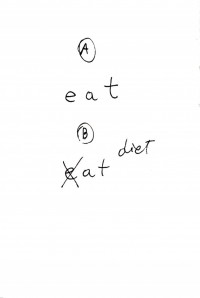 A
eat
B
eat diet